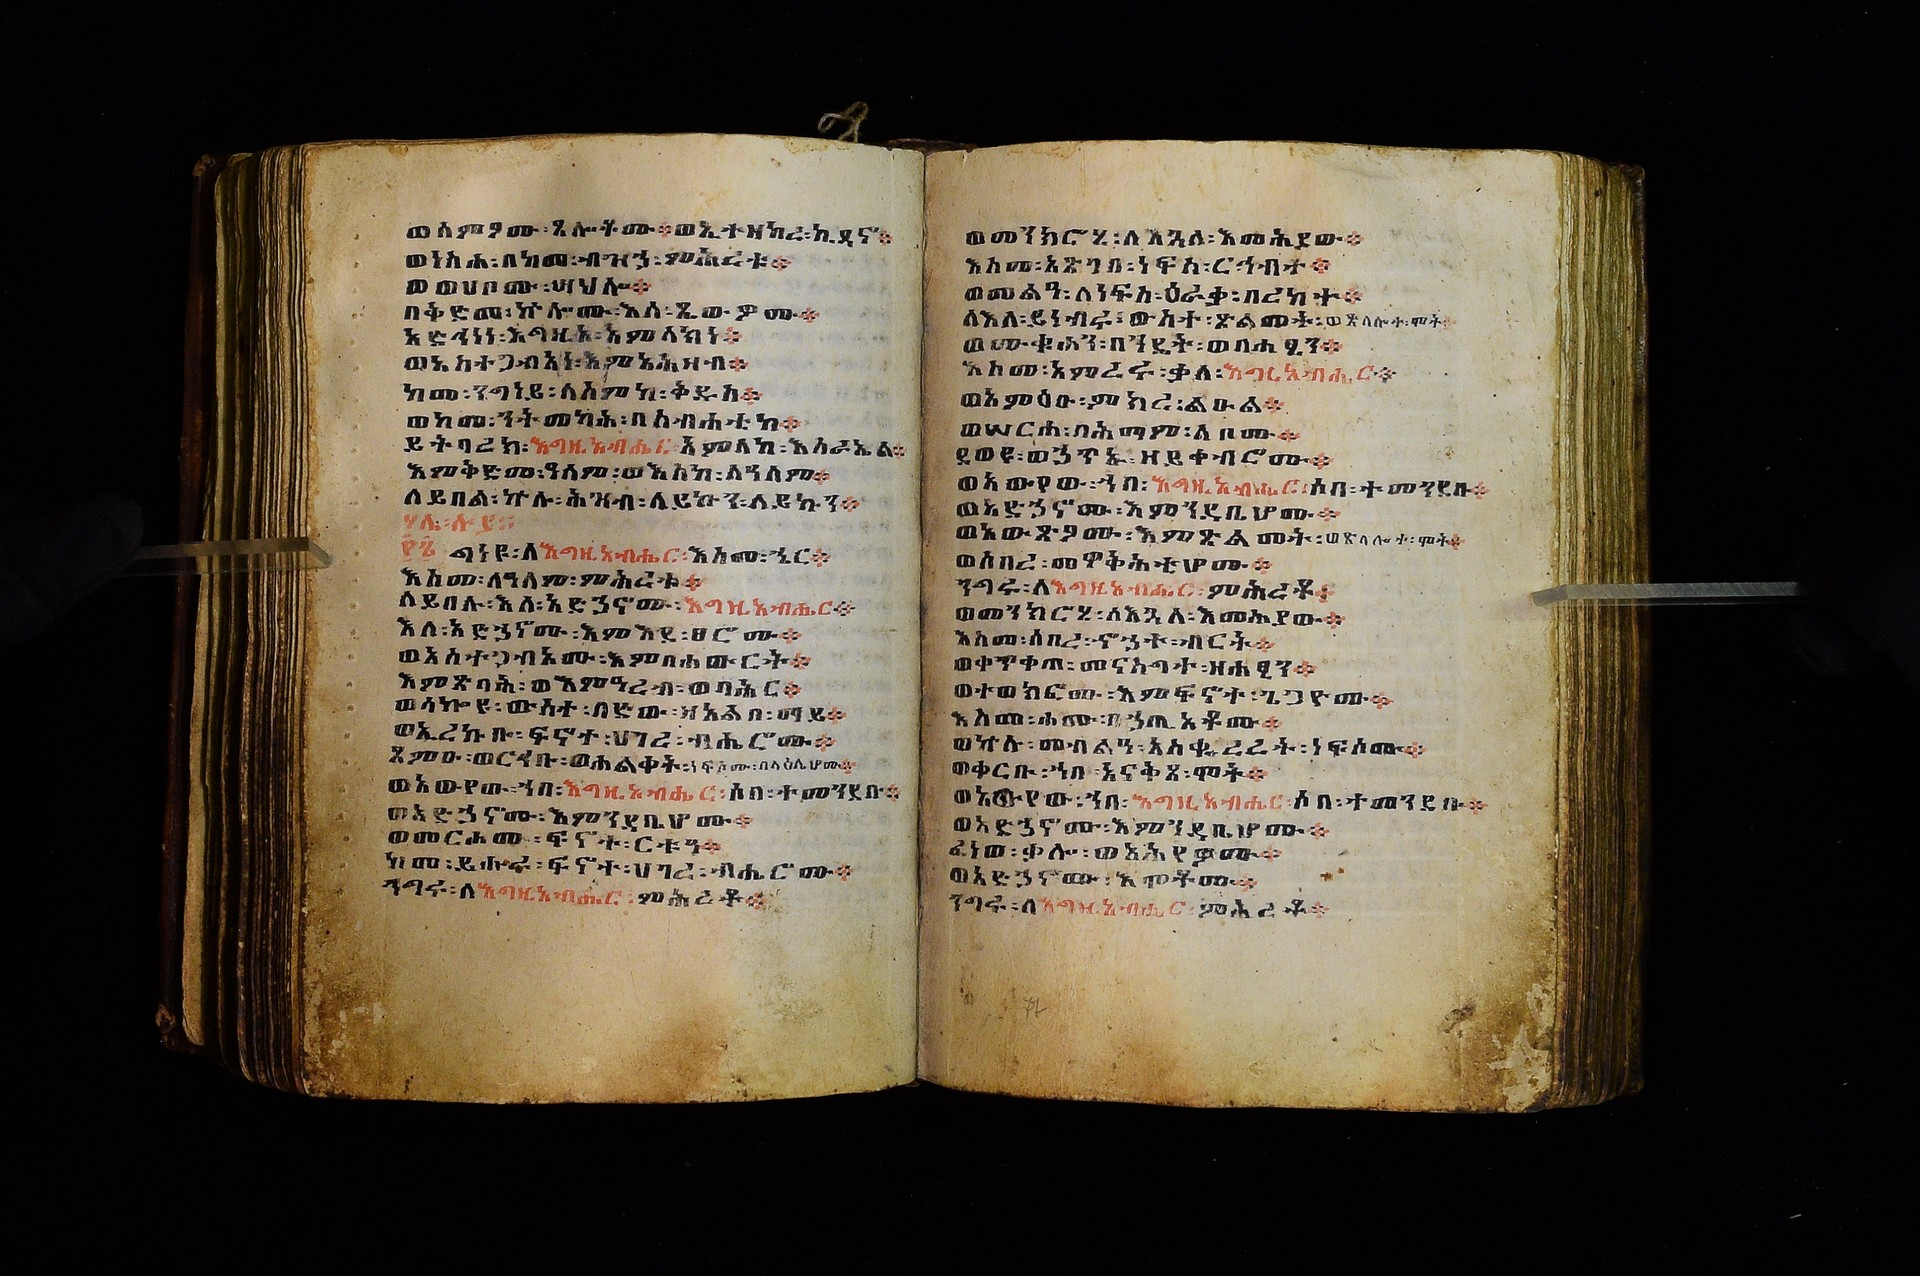 ወሰምዖሙ፡ጸሎቶሙ፨ወኢተዘከረ፡ኪዳኖ፨
ወነስሐ፡በከመ፡ብዝኃ፡ምሕረቱ፨
ወወሀቦሙ፡ሣህሎ፨
በቅድመ፡ኵሎሙ፡እለ፡ጼወዎሙ፨
አድኅነነ፡እግዚኦ፡አምላክነ፨
ወአስተጋብአነ፡እምአሕዛብ፨
ከመ፡ንግነይ፡ለስምከ፡ቅዱስ፨
ወከመ፡ንትመካሕ፡በስብሐቲከ፨
ይትባረክ፡እግዚአብሔር፡አምላከ፡እስራኤል፨
እምቅድመ፡ዓለም፡ወእስከ፡ለዓለም፨
ለይበል፡ኵሉ፡ሕዝብ፡ለይኩን፡ለይኩን፨
ሃሌ፡ሉያ፨
፻፮ ግነዩ፡ለእግዚአብሔር፡እስመ፡ኄር፨
እስመ፡ለዓለም፡ምሕረቱ፨
ለይበሉ፡እለ፡አድኃኖሙ፡እግዚአብሔር፨
እለ፡አድኃኖሙ፡እምእደ፡ፀሮሙ፨
ወአስተጋብአሙ፡እምበሐውርት፨
እምጽባሕ፡ወእምዓረብ፡ወባሕር፨
ወሳኰዩ፡ውስተ፡በድው፡ዘአልቦ፡ማይ፨
ወኢረከቡ፡ፍኖተ፡ሀገረ፡ብሔሮሙ፨
ጸምዑ፡ወርኅቡ፡ወሐልቀት፡ነፍሶሙ፡በላዕሌሆሙ፨
ወአውየው፡ኀበ፡እግዚአብሔር፡ሶበ፡ተመንደቡ፨
ወአድኃኖሙ፡እምንዳቤሆሙ፨
ወመርሐሙ፡ፍኖተ፡ርቱዓ፨
ከመ፡ይሑሩ፡ፍኖተ፡ሀገረ፡ብሔሮሙ፨
ንግሩ፡ለእግዚአብሔር፡ምሕረቶ፨
ወመንክሮሂ፡ለእጓለ፡እመሕያው፨
እስመ፡አጽገበ፡ነፍሰ፡ርኅብተ፨
ወመልዓ፡ለነፍስ፡ዕራቃ፡በረከተ፨
ለእለ፡ይነብሩ፡ውስተ፡ጽልመት፡ወጽላሎተ፡ሞት፨
ወሙቁሐን፡በንዴት፡ወበሐፂን፨
እስመ፡አምረሩ፡ቃለ፡እግዚአብሔር፨
ወአምዕዑ፡ምክረ፡ልዑል፨
ወሠርሐ፡በሕማም፡ልቦሙ፨
ደወዩ፡ወኃጥኡ፡ዘይቀብሮሙ፨
ወአውየው፡ኀበ፡እግዚአብሔር፡ሶበ፡ተመንደቡ፨
ወአድኃኖሙ፡እምንዳቤሆሙ፨
ወአውጽዖሙ፡እምጽልመት፡ወጽላሎተ፡ሞት፨
ወሰበረ፡መዋቅሕቲሆሙ፨
ንግሩ፡ለእግዚአብሔር፡ምሕረቶ፨
ወመንክሮሂ፡ለእጓለ፡እመሕያው፨
እስመ፡ሰበረ፡ኆኃተ፡ብርት፨
ወቀጥቀጠ፡መናስግተ፡ዘሐፂን፨
ወተወክፎሙ፡እምፍኖተ፡ጌጋዮሙ፨
እስመ፡ሐሙ፡በኃጢአቶሙ፨
ወኵሉ፡መብልዓ፡አስቆረረት፡ነፍሶሙ፨
ወቀርቡ፡ኀበ፡አናቅጸ፡ሞት፨
ወአውየው፡ኀበ፡እግዚአብሔር፡ሶበ፡ተመንደቡ፨
ወአድኃኖሙ፡እምንዳቤሆሙ፨
ፈነወ፡ቃሎ፡ወአሕየዎሙ፨
ወአድኃኖሙ፡እሞቶሙ፨
ንግሩ፡ለእግዚአብሔር፡ምሕረቶ፨